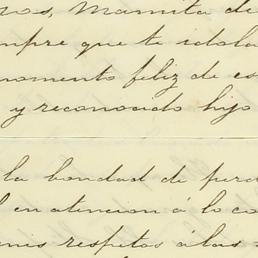 ros, Mamita de
mpre que te idola
momento feliz de es
y reconocido hijo
la bondad de perd
l en atencion á lo co
mis respetos á las s